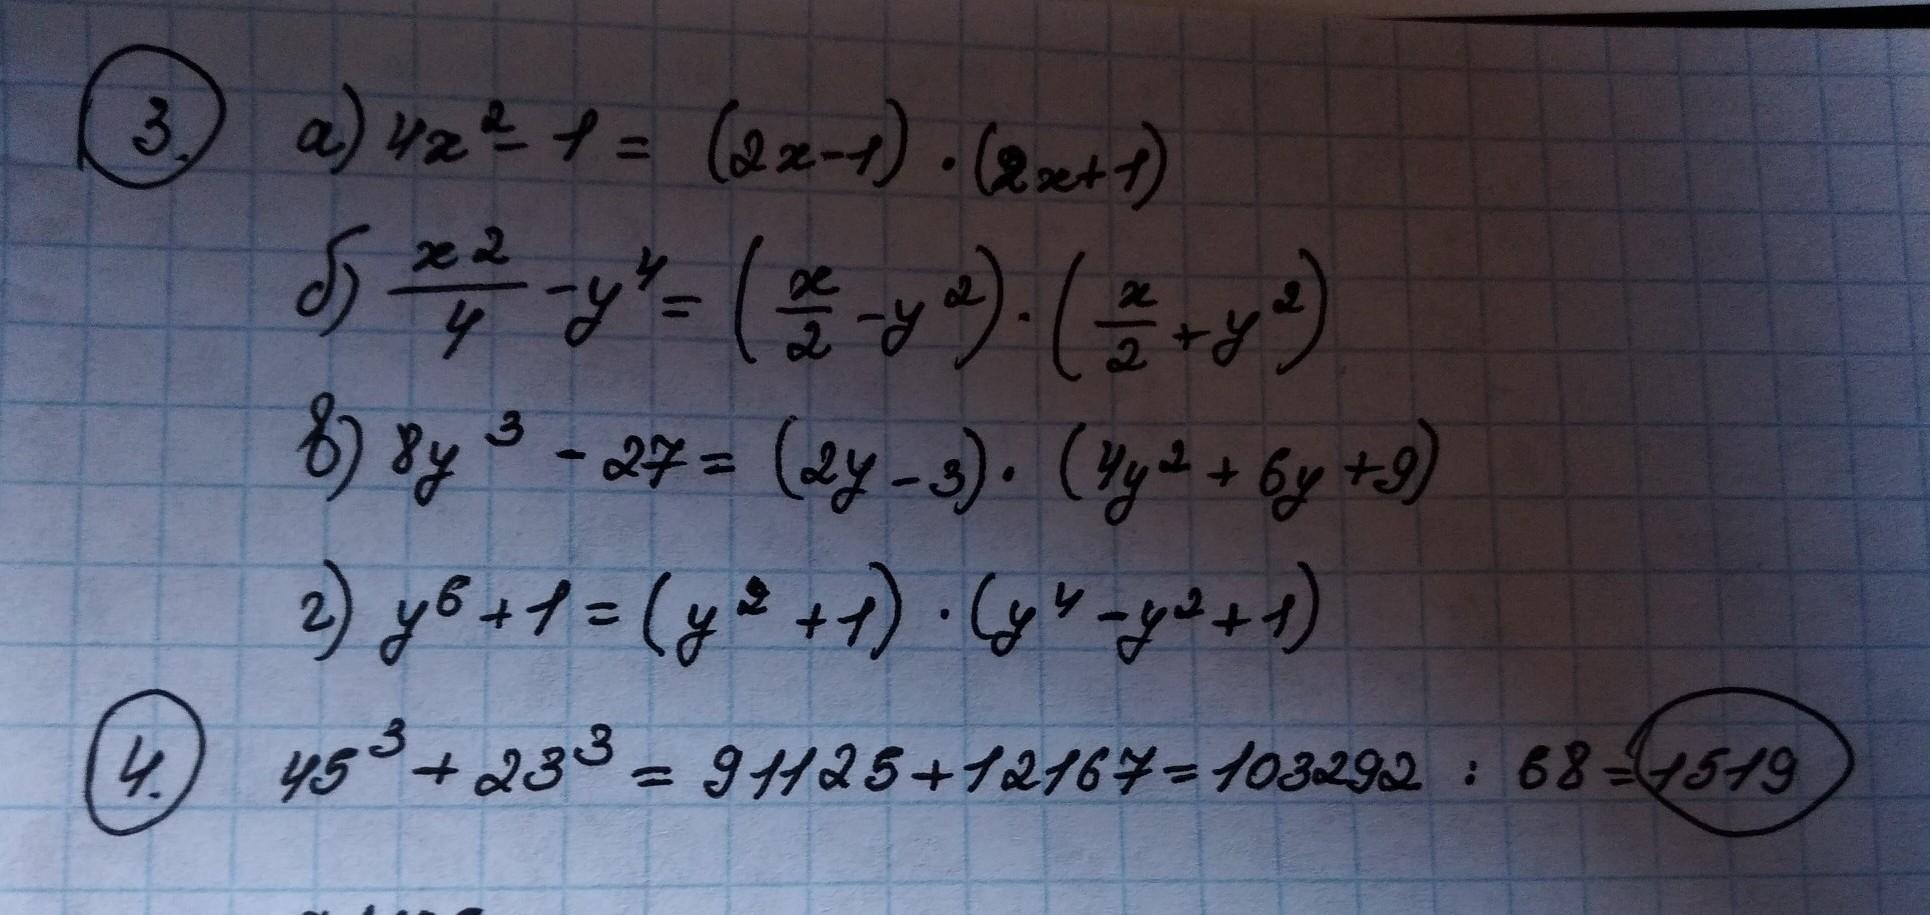 3. а) 4x² - 1 = (2x-1) · (2x+1)
б) x2/4 - y⁴ = (x/2 - y²) · (x/2 + y²)
в) 8y³ - 27 = (2y - 3) · (4y² + 6y + 9)
г) y⁶ + 1 = (y² + 1) · (y⁴ - y² + 1)
4. 45³ + 23³ = 91125 + 12167 = 103292 : 68 = 1519